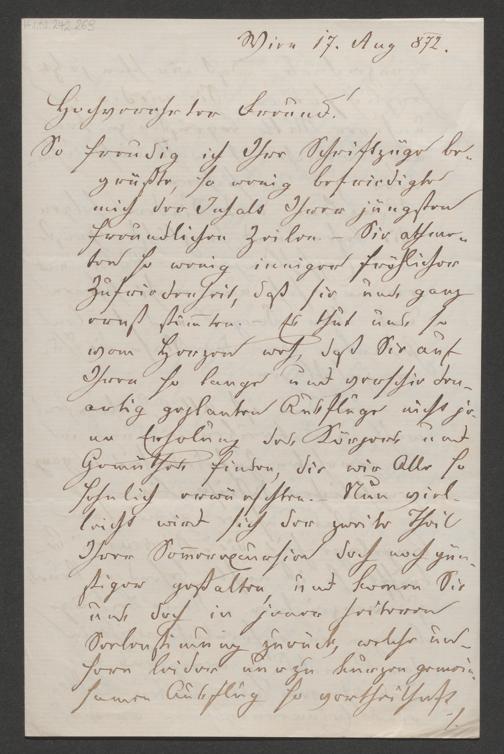 H.I.N. 242.269
Wien 17. Aug 872.
Hochverehrter Freund!
So freudig ich Ihre Schriftzüge be-
grüßte, so wenig befriedigte
mich der Inhalt Ihrer jüngsten
freundlichen Zeilen – Sie athme-
ten so wenig inniger fröhlicher
Zufriedenheit, daß sie uns ganz
ernst stimten. Es thut uns so
vom Herzen weh, daß Sie auf
Ihren so lange und verschieden-
artig geplanten Ausflüge nicht je-
ne Erholung des Körpers und
Gemüthes finden, die wir Alle so
sehnlich erwünschten. – Nun viel-
leicht wird sich der zweite Theil
Ihrer Sommerexcursion doch noch gün-
stiger gestalten, und komen Sie
uns doch in jener heiteren
Seelenstimung zurück, welche un-
sern leider nur zu kurzen gemein-
samen Ausflug so vortheilhaft